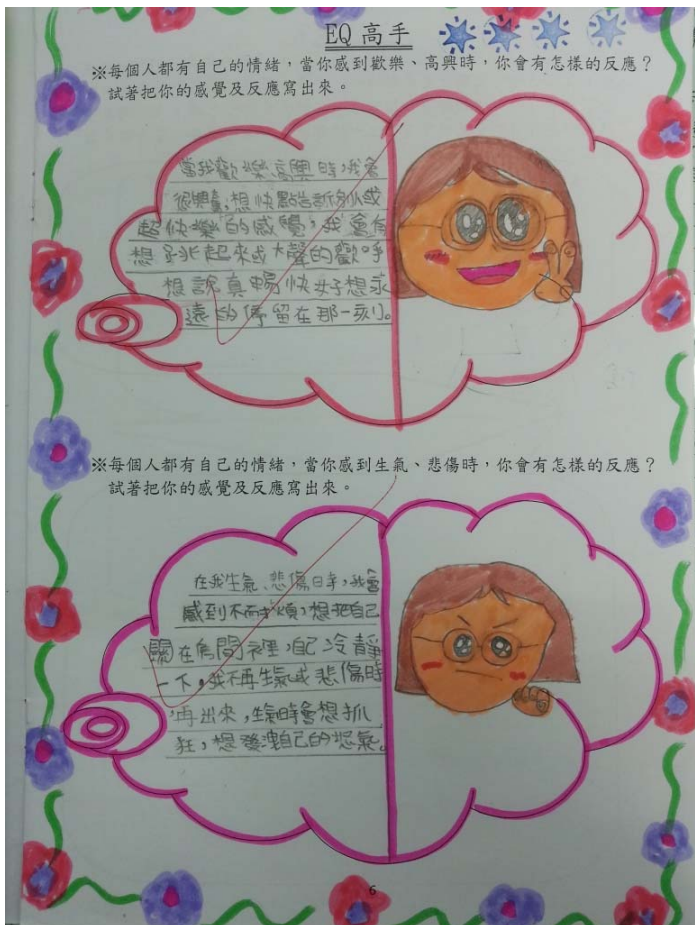 EQ 高手
※每個人都有自己的情緒，當你感到歡樂、高興時，你會有怎樣的反應？
試著把你的感覺及反應寫出來。
當我歡樂高興時，我會
很興奮，想快點告訴別人或
超快樂的感覺，我會有
想跳起來或大聲的歡呼
想說真暢快好想永
遠的停留在那一刻。
※每個人都有自己的情緒，當你感到生氣、悲傷時，你會有怎樣的反應？
試著把你的感覺及反應寫出來。
在我生氣、悲傷時，我會
感到不耐煩，想把自己
關在房間裡，自己冷靜
一下，我不再生氣或悲傷時
，再出來，生氣時會想抓
狂，想發洩自己的怒氣。
6